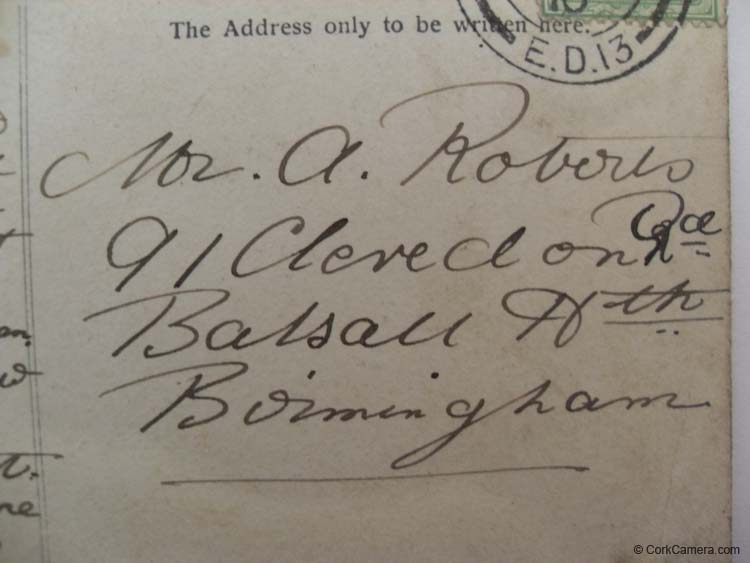 The Address only to be written here.
10
E.D.13
Mr. A. Roberts
91 Clevedon Rd
Balsall Hth
Birmingham
© CorkCamera.com